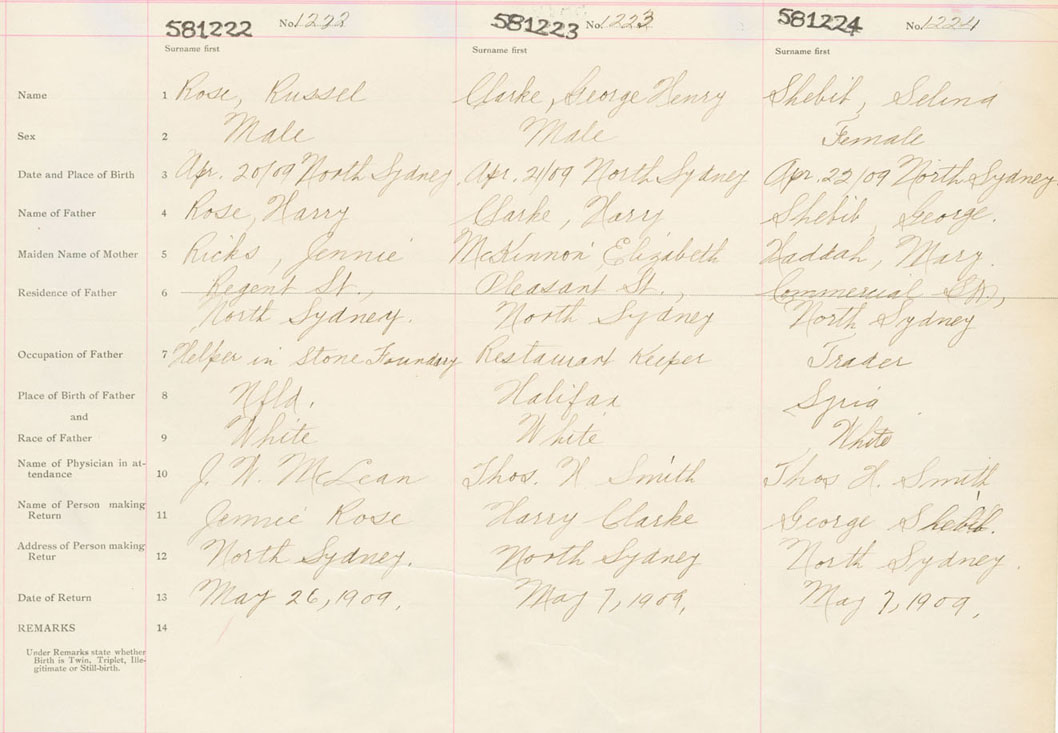 581222 No. 1222 581223 No. 1223 581224 No. 1224
Surname first Surname first Surname first
Name 1 Rose, Russel Clarke, George Henry Shebib, Selina
Sex 2 Male Male Female
Date and Place of Birth 3 Apr. 20/09 North Sydney Apr. 21/09 North Sydney Apr. 22/09 North Sydney
Name of Father 4 Rose, Harry Clarke, Harry Shebib, George.
Maiden Name of Mother 5 Ricks, Jennie McKinnon, Elizabeth Haddah, Mary.
Residence of Father 6 Regent St., Pleasant St., Commercial St.,
North Sydney. North Sydney North Sydney
Occupation of Father 7 Helper in Stone Foundry Restaurant Keeper Trader
Place of Birth of Father 8 Nfld. Halifax Syria
and
Race of Father 9 White White White
Name of Physician in at-
tendance 10 J. W. McLean Thos. H Smith Thos H. Smith
Name of Person making
Return 11 Jennie Rose Harry Clarke George Shebib.
Address of Person making
Retur 12 North Sydney. North Sydney North Sydney.
Date of Return 13 May 26, 1909, May 7, 1909, May 7, 1909,
REMARKS 14
Under Remarks state whether
Birth is Twin, Triplet, Ille-
gitimate or Still-birth.